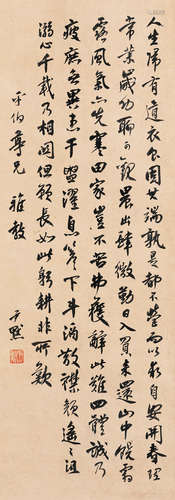 人生歸有道衣食固其端孰是都不營而以求自安開春理
常業歲功聊可觀晨出肆微勤日入負耒還山中饒霜
露風氣亦先寒田家豈不苦弗獲辭此難四體誠乃
疲庶無異患干盥濯息簷下斗酒散襟顏遙遙沮
溺心千載乃相關但願長如此躬耕非所歎
平伯尊兄 雅教
尹默